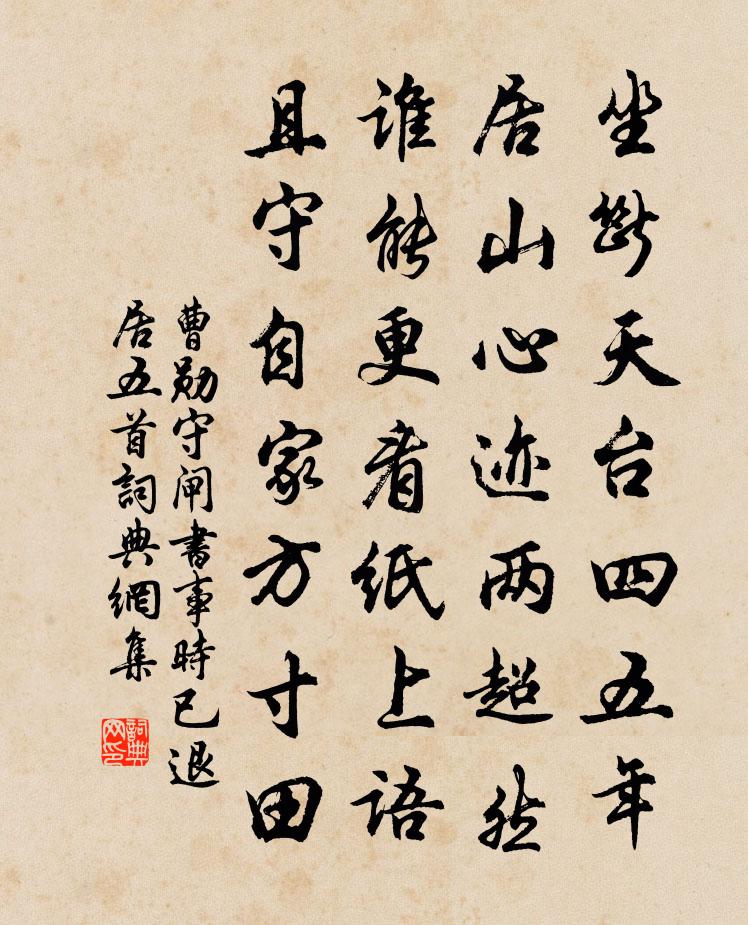 坐斷天台四五年
居山心迹两超然
誰能更看紙上語
且守自家方寸田
曹勛守閘書事時已退
居五首詞典網集
詞典网印